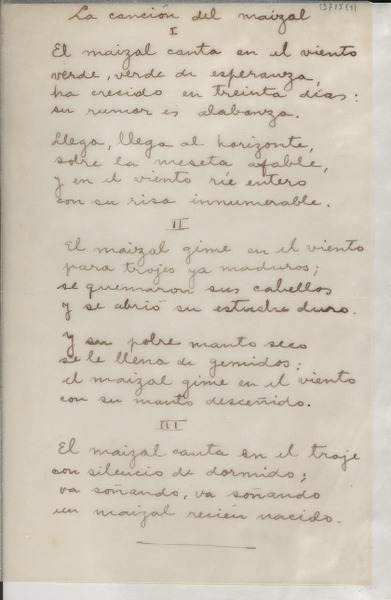 13715(1)
La canción del maizal
I
El maizal canta en el viento
verde, verde de esperanza,
ha crecido en treinta días:
su rumor es alabanza.
Llega, llega al horizonte,
sobre la meseta afable,
y en el viento ríe entero
con su risa innumerable.
II
El maizal gime en el viento
para trojes ya maduros;
se quemaron sus cabellos
y se abrió su estuche duro.
Y su pobre manto seco
se le llena de gemidos:
el maizal gime en el viento
con su manto desceñido.
III
El maizal canta en el troje
con silencio de dormido;
va soñando, va soñando
un maizal recién nacido.